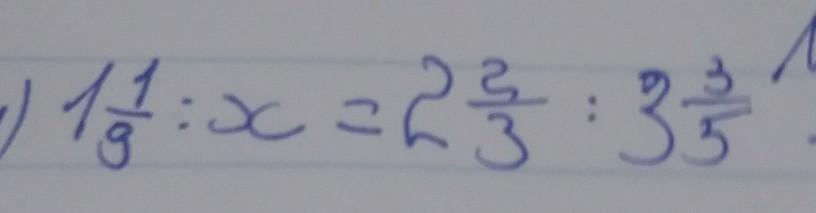 ) 1 1/9 : x = 2 2/3 : 3 3/5